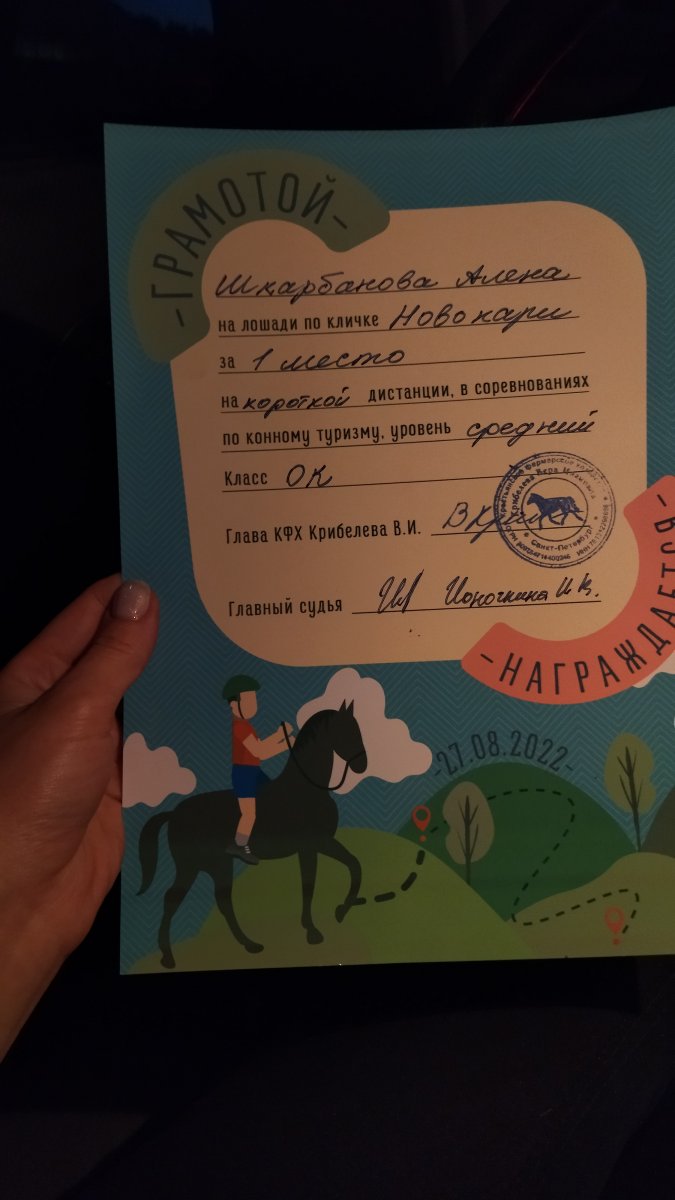 -ГРАМОТОЙ-
Шкарбанова Алена
на лошади по кличке Новокари
за 1 место
на короткой дистанции, в соревнованиях
по конному туризму, уровень средний
Класс ОК
Глава КФХ Крибелева В.И.
Главный судья Ионочкина И.К.
-НАГРАЖДАЕТСЯ-
-27.08.2022-
Крибелева Вера
Санкт-Петербург